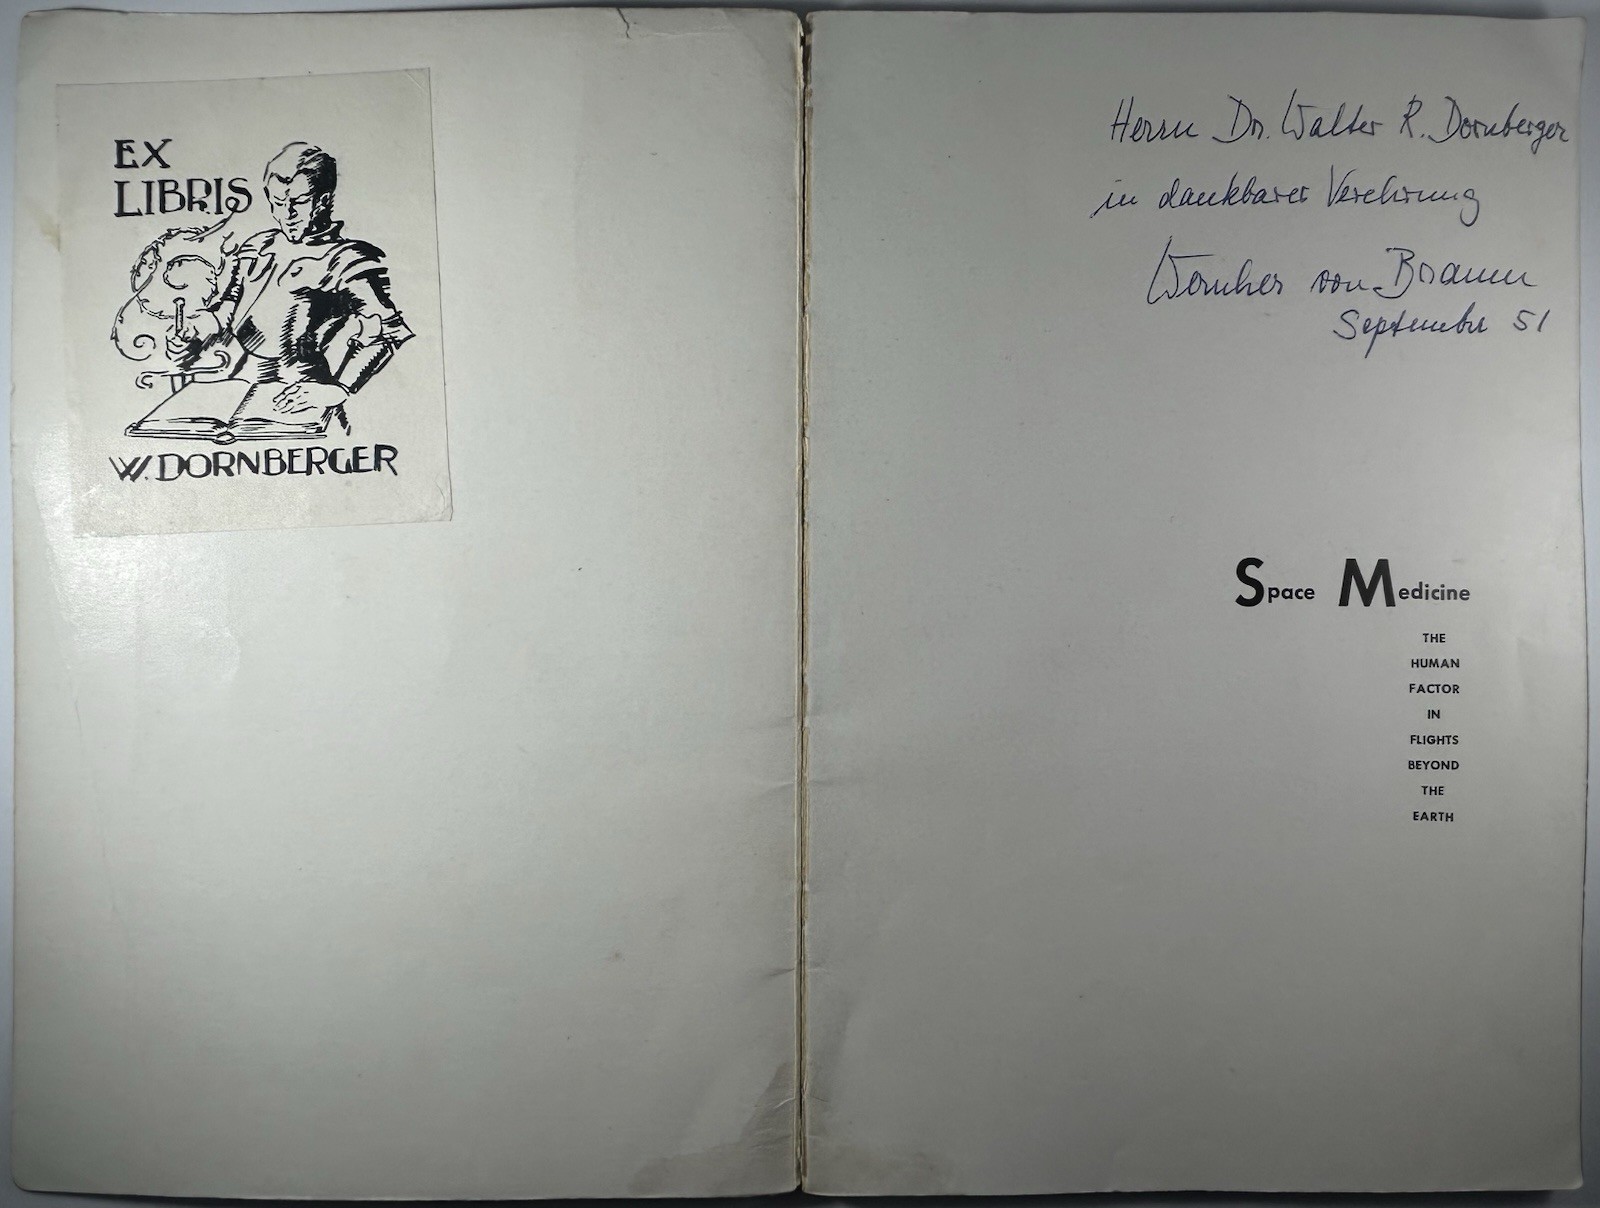 EX
LIBRIS
W. DORNBERGER
Herrn Dr. Walter R. Dornberger
in dankbarer Verehrung
Wernher von Braun
September 51
Space Medicine
THE
HUMAN
FACTOR
IN
FLIGHTS
BEYOND
THE
EARTH